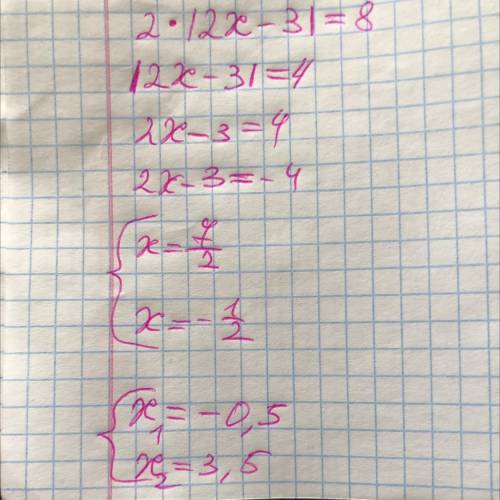 2·|2x-3|=8
|2x-3|=4
2x-3=4
2x-3=-4
x=7/2
x=-1/2
x₁=-0,5
x₂=3,5